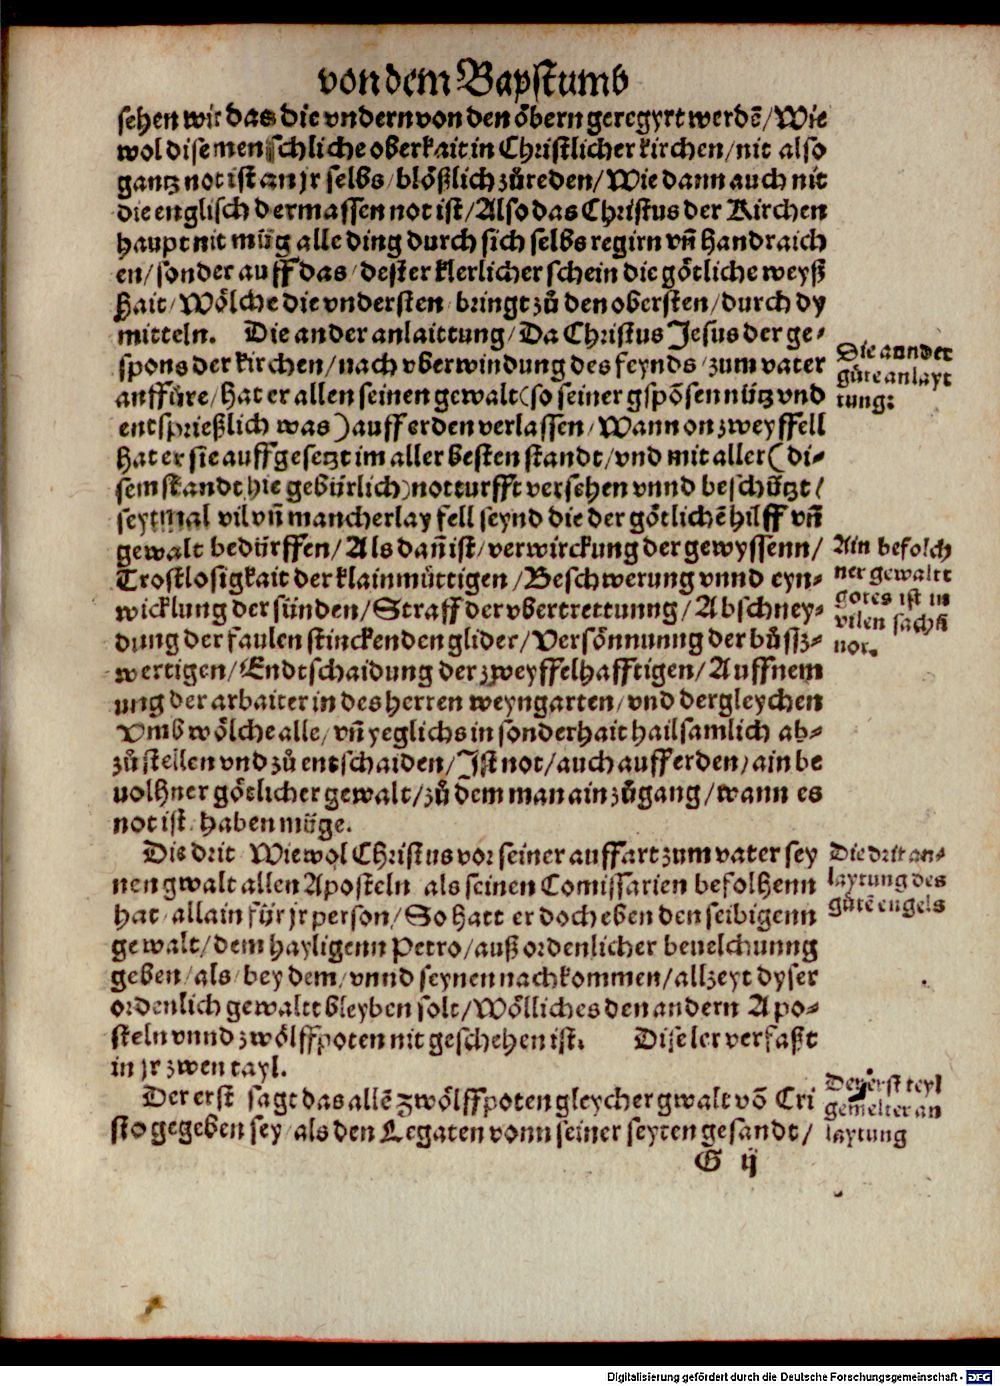 von dem Bapstumb
sehen wir das die vndern von den öbern geregyrt werdē/ Wie
wol dise menschliche oberkait in Christlicher kirchen/ nit also
gantz not ist an jr selbs/ blößlich zůreden/ Wie dann auch nit
die englisch dermassen not ist/ Also das Christus der Kirchen
haupt nit müg alle ding durch sich selbs regirn vñ handraich
en/ sonder auff das/ dester klerlicher schein die götliche weyß
hait/ Wölche die vndersten bringt zů den obersten/ durch dy
mitteln. Die ander anlaittung/ Da Christus Jesus der ge-
spons der kirchen/ nach vberwindung des feynds/ zum vater
auffüre/ hat er allen seinen gewalt (so seiner gspōsen nütz vnd
entsprießlich was) auff erden verlassen/ Wann on zweyffell
hat er sie auffgesetzt im aller besten standt/ vnd mit aller (di-
sem standt hie gebürlich) notturfft versehen vnnd beschützt/
seytmal vil vñ mancherlay fell seynd die der götlichē hilff vñ
gewalt bedürffen/ Als dañ ist/ verwirckung der gewyssenn/
Trostlosigkait der klainmüttigen/ Beschwerung vnnd eyn-
wicklung der sünden/ Straff der vbertrettunng/ Abschney-
dung der faulen stinckenden glider/ Versönnunng der bůsz-
wertigen/ Endtschaidung der zweyffelhafftigen/ Auffnem
ung der arbaiter in des herren weyngarten/ vnd dergleychen
Vmb wölche alle/ vñ yeglichs in sonderhait hailsamlich ab-
zůstellen vnd zů entschaiden/ Jst not/ auch auff erden/ ain be
uolhner götlicher gewalt/ zů dem man ain zůgang/ wann es
not ist haben müge.
Die drit Wiewol Christus vor seiner auffart zum vater sey
nen gwalt allen Aposteln als seinen Comissarien befolhenn
hat/ allain für jr person/ So hatt er doch eben den selbigenn
gewalt/ dem hayligenn Petro/ auß ordenlicher beuelchunng
geben/ als/ bey dem/ vnnd seynen nachkommen/ allzeyt dyser
ordenlich gewaltt bleyben solt/ Wölliches den andern Apo-
steln vnnd zwölffpoten nit geschehen ist. Dise ler verfaßt
in jr zwen tayl.
Der erst sagt das allē zwölffpoten gleycher gwalt vō Cri
sto gegeben sey/ als den Legaten vonn seiner seyten gesandt/
G ij
Die annder
gůte anlayt
tung:
Ain befolch
ner gewaltt
gotes ist in
vilen sachñ
not.
Die drit an-
laytung des
gůtē engels
Der erst teyl
gemelter an
laytung
Digitalisierung gefördert durch die Deutsche Forschungsgemeinschaft - DFG